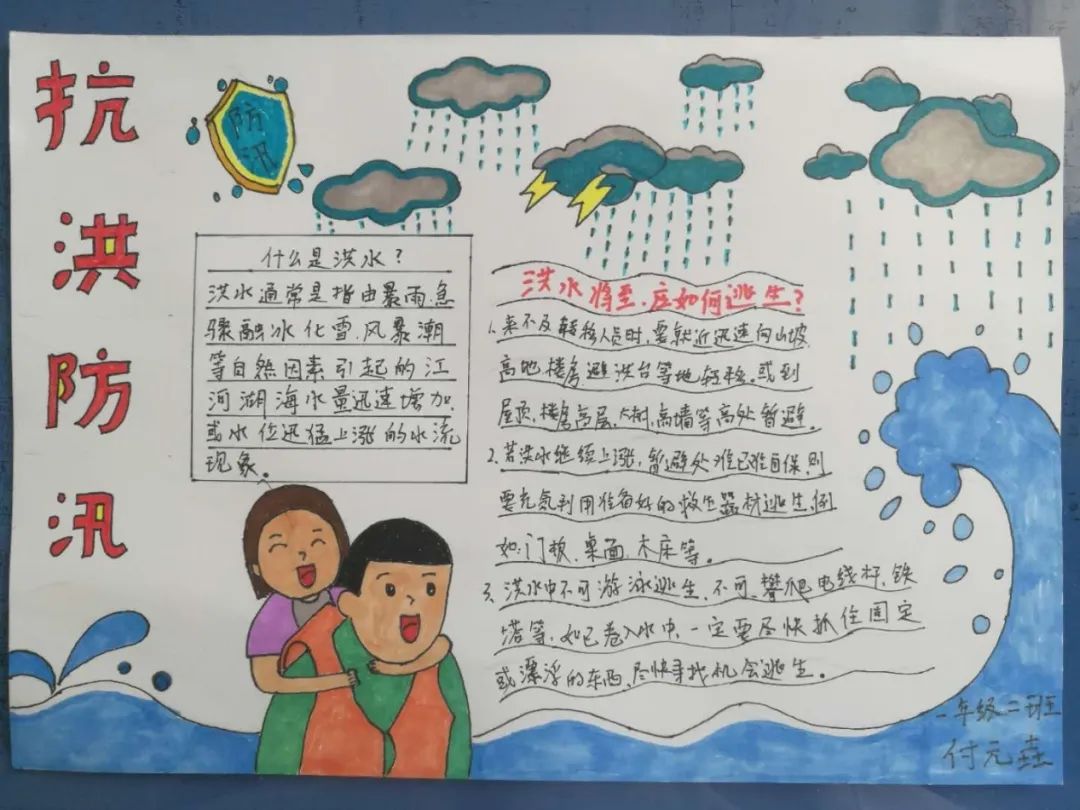 抗
洪
防
汛
防
汛
什么是洪水？
洪水通常是指由暴雨.急
骤融冰化雪.风暴潮
等自然因素引起的江
河湖海水量迅速增加.
或水位迅猛上涨的水流
现象。
洪水将至.应如何逃生？
1.来不及转移人员时,要就近迅速向山坡.
高地.楼房.避洪台等地转移.或到
屋顶.楼房高层.大树.高墙等高处暂避。
2.若洪水继续上涨,暂避处难已自保,则
要充氛利用准备好的救生器材逃生.例
如:门板.桌面.木床等。
3.洪水中不可游泳逃生.不可攀爬电线杆.铁
塔等.如已卷入水中.一定要尽快抓住固定
或漂浮的东西.尽快寻找机会逃生。
一年级二班
付元